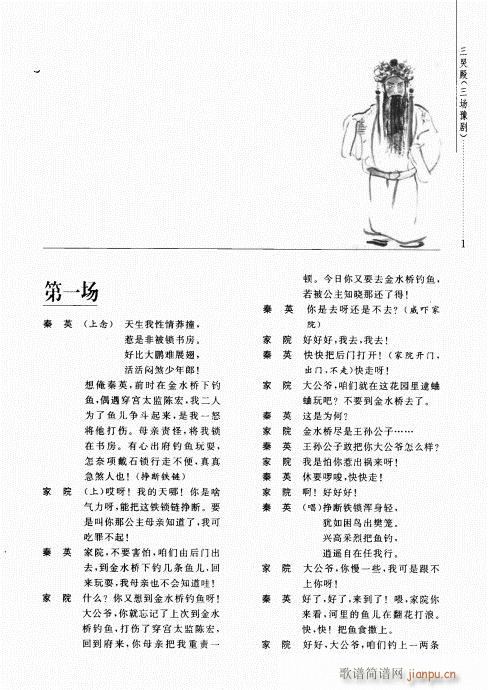 三哭殿(三场豫剧)
1
第一场
秦 英 (上念) 天生我性情莽撞,
惹是非被锁书房。
好比大鹏难展翅,
活活闷煞少年郎!
想俺秦英,前时在金水桥下钓
鱼,偶遇穿宫太监陈宏,我二人
为了鱼儿争斗起来,是我一怒
将他打伤。母亲责怪,将我锁
在书房。有心出府钓鱼玩耍,
怎奈项戴石锁行走不便,真真
急煞人也!(挣断铁链)
家 院 (上)哎呀!我的天哪!你是啥
气力呀,能把这铁锁链挣断。要
是叫你那公主母亲知道了,我可
吃罪不起!
秦 英 家院,不要害怕,咱们由后门出
去,到金水桥下钓几条鱼儿,回
来玩耍,我母亲也不会知道哇!
家 院 什么?你又想到金水桥钓鱼呀!
大公爷,你就忘记了上次到金水
桥钓鱼,打伤了穿宫太监陈宏,
回到府来,你母亲把我重责一
顿。今日你又要去金水桥钓鱼,
若被公主知晓那还了得!
秦 英 你是去呀还是不去?(威吓家
院)
家 院 好好好,我去,我去!
秦 英 快快把后门打开!(家院开门,
出门,不走)快走呀!
家 院 大公爷,咱们就在这花园里逮蛐
蛐玩吧?不要到金水桥去了。
秦 英 这是为何?
家 院 金水桥尽是王孙公子……
秦 英 王孙公子敢把你大公爷怎么样?
家 院 我是怕你惹出祸来呀!
秦 英 休要啰唆,快快走!
家 院 啊!好好好!
秦 英 (唱)挣断铁锁浑身轻,
犹如困鸟出樊笼。
兴高采烈把鱼钓,
逍遥自在任我行。
家 院 大公爷,你慢一些,我可是跟不
上你呀!
秦 英 好了,好了,来到了!喂,家院你
来看,河里的鱼儿在翻花打浪。
快,快!把鱼食撒上。
家 院 好好,大公爷,咱们钓上一两条
歌谱简谱网
jianpu.cn